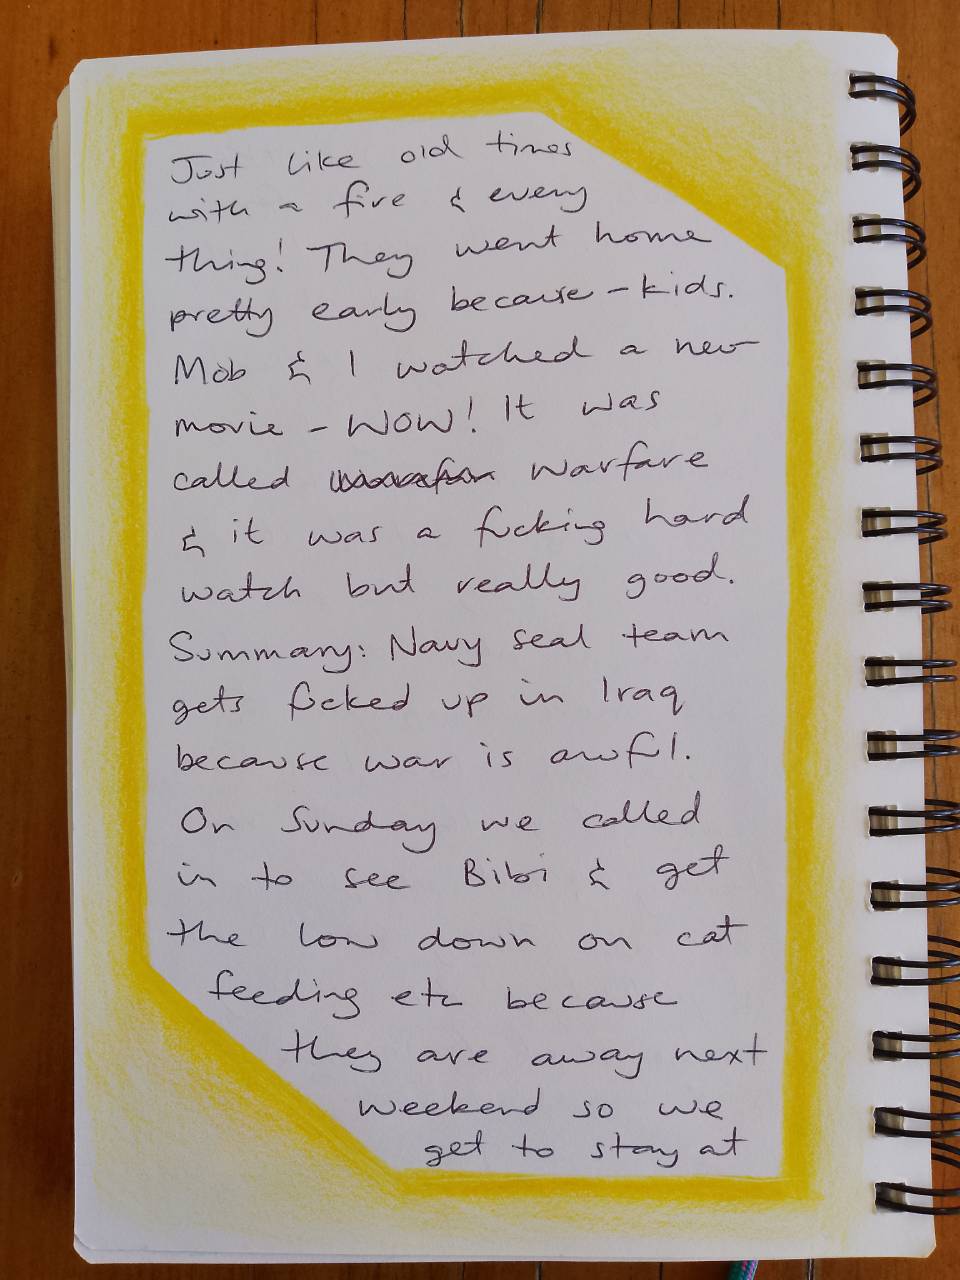 Just like old times
with a fire & every
thing! They went home
pretty early because - kids.
Mob & I watched a new
movie - WOW! It was
called warfare
& it was a fucking hard
watch but really good.
Summary: Navy seal team
gets fucked up in Iraq
because war is awful.
On Sunday we called
in to see Bibi & get
the low down on cat
feeding etc because
they are away next
weekend so we
get to stay at